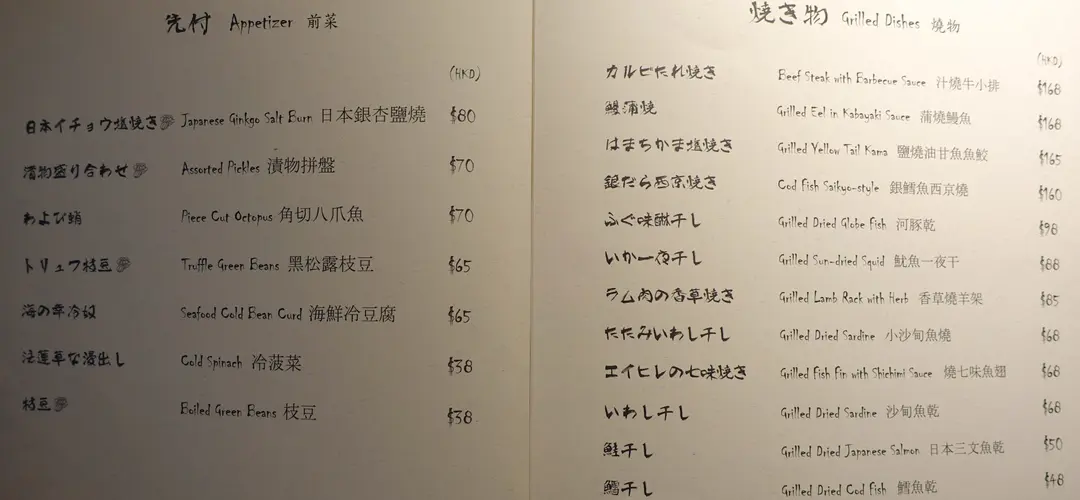 先付 Appetizer 前菜
(HKD)
日本イチョウ塩焼き Japanese Ginkgo Salt Burn 日本銀杏鹽燒 $80
漬物盛り合わせ Assorted Pickles 漬物拼盤 $70
および蛸 Piece Cut Octopus 角切八爪魚 $70
トリュフ枝豆 Truffle Green Beans 黑松露枝豆 $65
海の幸冷奴 Seafood Cold Bean Curd 海鮮冷豆腐 $65
法蓮草な浸出し Cold Spinach 冷菠菜 $38
枝豆 Boiled Green Beans 枝豆 $38
焼き物 Grilled Dishes 燒物
(HKD)
カルビたれ焼き Beef Steak with Barbecue Sauce 汁燒牛小排 $168
鰻蒲焼 Grilled Eel in Kabayaki Sauce 蒲燒鰻魚 $168
はまちかま塩焼き Grilled Yellow Tail Kama 鹽燒油甘魚魚鮫 $165
銀だら西京焼き Cod Fish Saikyo-style 銀鱈魚西京燒 $160
ふぐ味醂干し Grilled Dried Globe Fish 河豚乾 $98
いか一夜干し Grilled Sun-dried Squid 魷魚一夜干 $88
ラム肉の香草焼き Grilled Lamb Rack with Herb 香草燒羊架 $85
たたみいわし干し Grilled Dried Sardine 小沙甸魚燒 $68
エイヒレの七味焼き Grilled Fish Fin with Shichimi Sauce 燒七味魚翅 $68
いわし干し Grilled Dried Sardine 沙甸魚乾 $68
鮭干し Grilled Dried Japanese Salmon 日本三文魚乾 $50
鱈干し Grilled Dried Cod Fish 鱈魚乾 $48